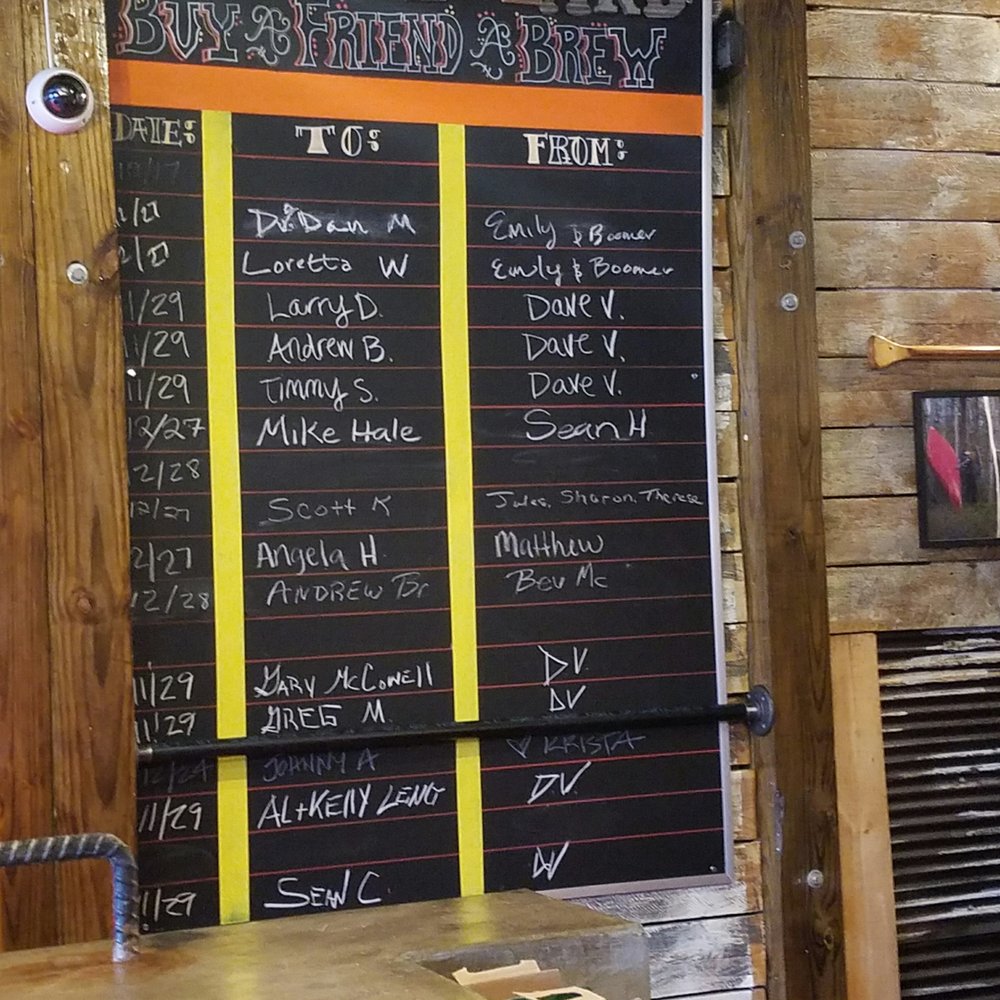 BUY A FRIEND A BREW
DATE: TO: FROM:
/27 Dr. Dan M Emily & Boomer
2/27 Loretta W Emily & Boomer
1/29 Larry D. Dave V.
11/29 Andrew B. Dave V.
11/29 Timmy S. Dave V.
12/27 Mike Hale Sean H
12/28
12/27 Scott K Jules, Sharon, Therese
2/27 Angela H Matthew
12/28 ANDREW Br Bev Mc
11/29 GARY McCONEll DV
11/29 GREG M. DV
12/24 JOHNNY A ♡ KRISTA
11/29 AL+KEllY LENG DV
11/29 SEAN C. DV